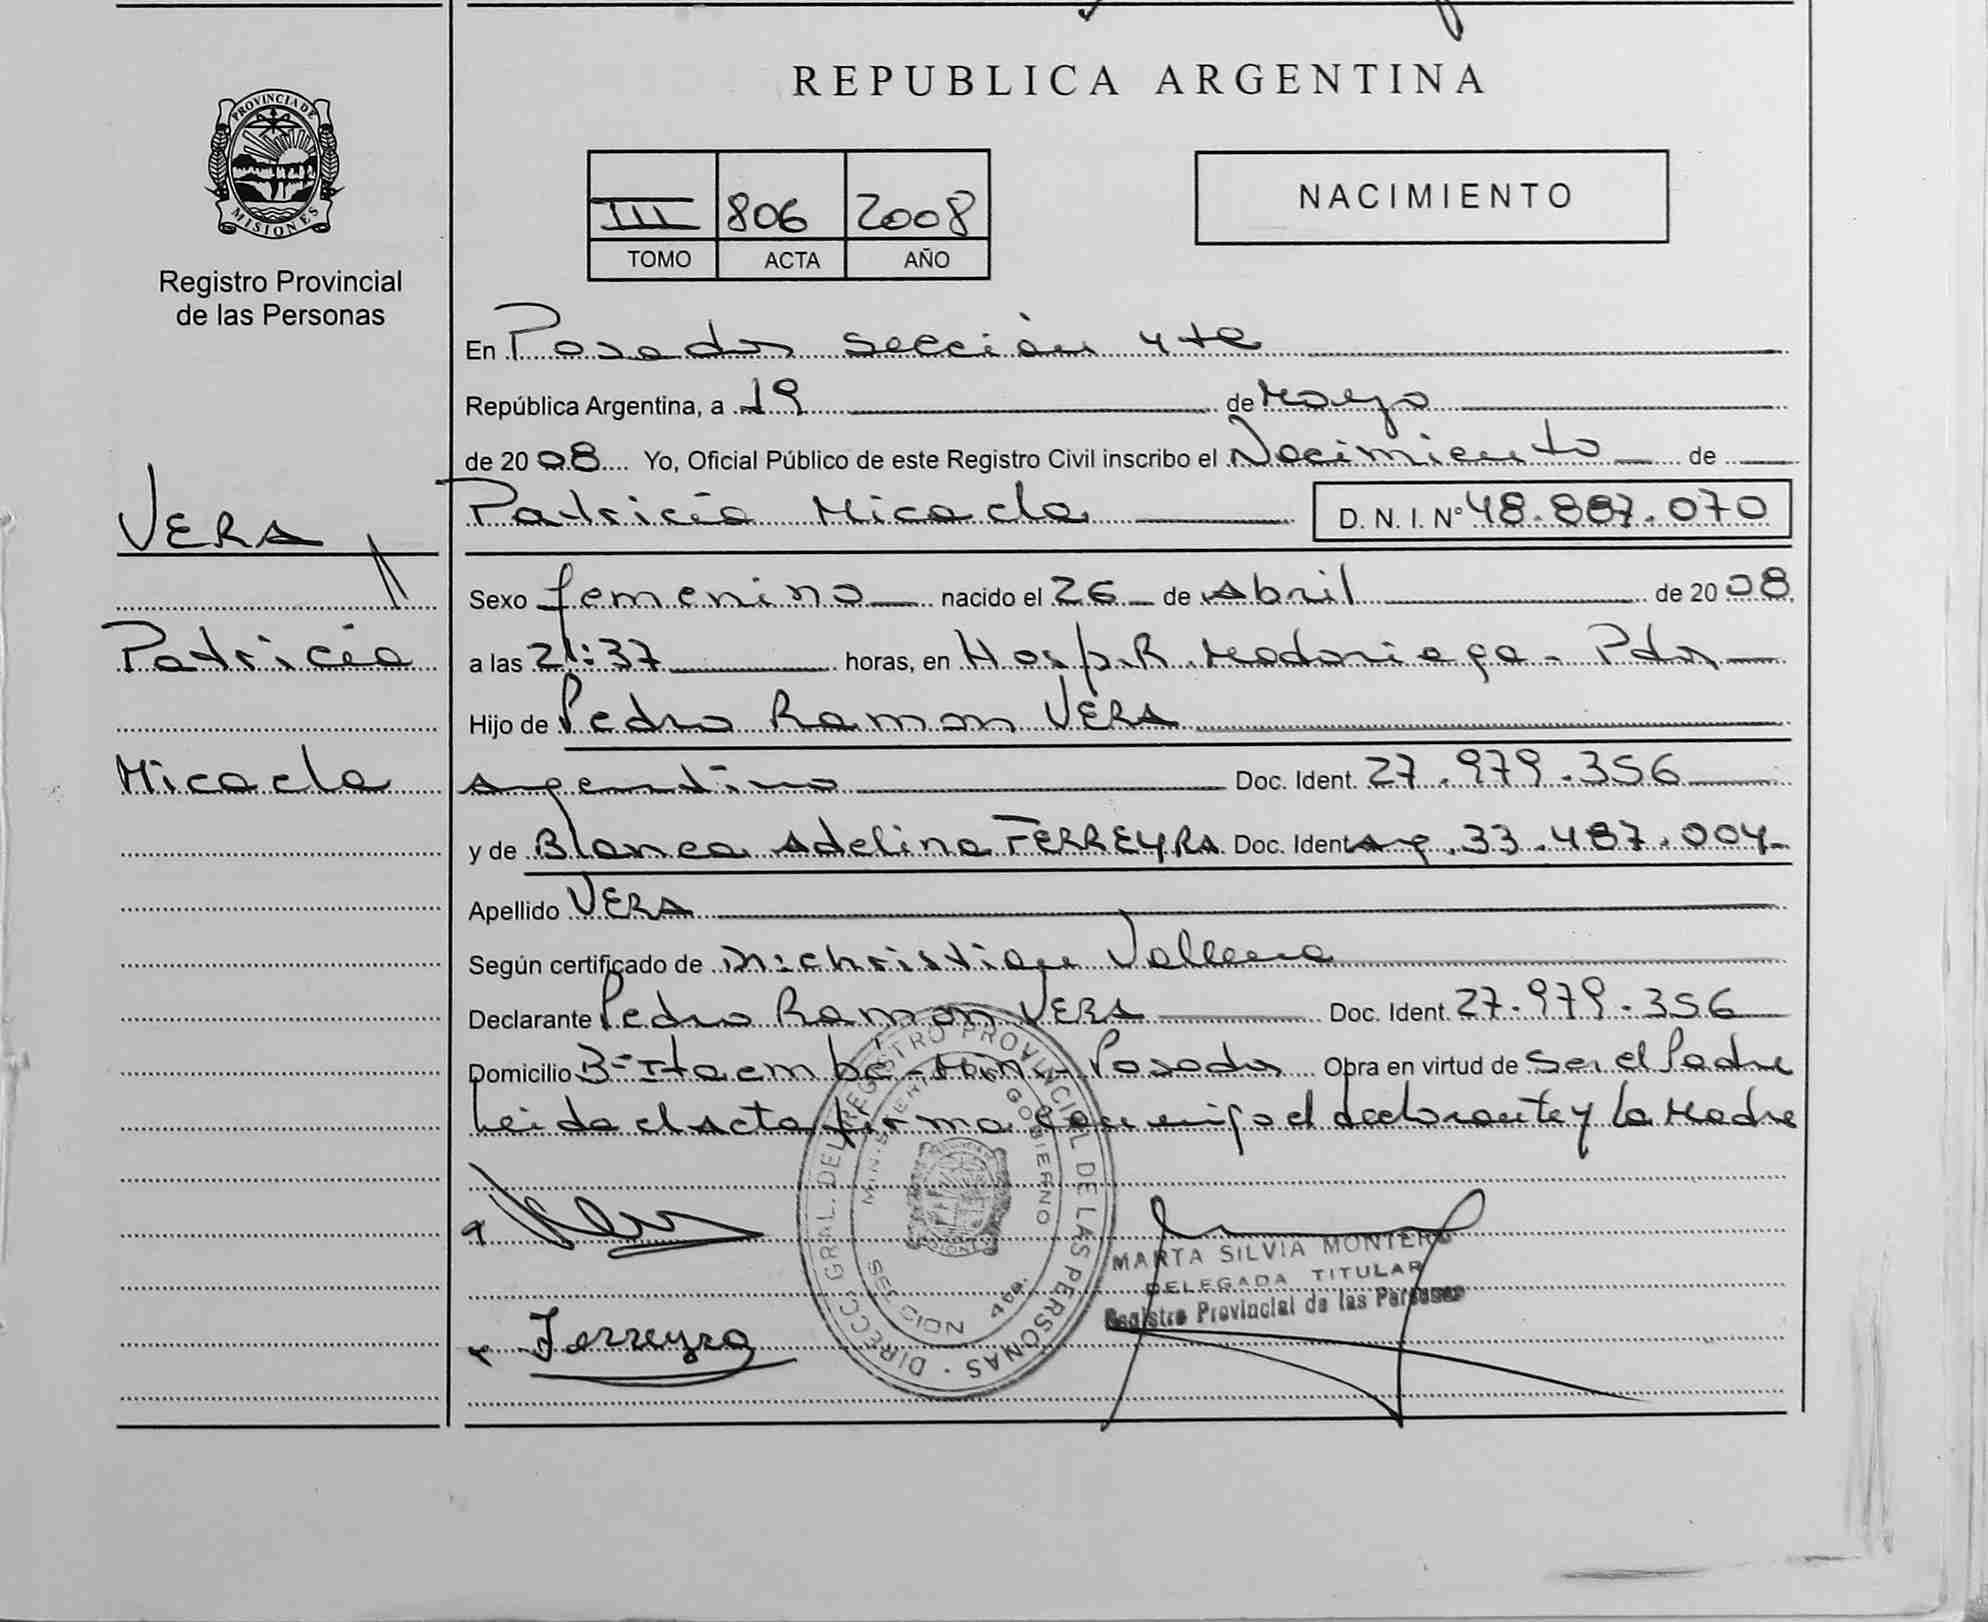 REPUBLICA ARGENTINA
PROVINCIA DE MISIONES
Registro Provincial
de las Personas
III 806 2008
TOMO ACTA AÑO
NACIMIENTO
En Posadas sección 4ta
República Argentina, a 19 de Mayo
de 2008 Yo, Oficial Público de este Registro Civil inscribo el Nacimiento de
Patricia Micaela D. N. I. Nº 48.887.070
VERA
Patricia
Micaela
Sexo femenino nacido el 26 de Abril de 2008
a las 21:37 horas, en Hosp. R. Madariaga - Pdas
Hijo de Pedro Ramon VERA
Argentino Doc. Ident. 27.979.356
y de Blanca Adelina FERREYRA Doc. Ident Arg. 33.487.004
Apellido VERA
Según certificado de Christian
Declarante Pedro Ramon VERA Doc. Ident. 27.979.356
Domicilio Bº Itaembé - Mini - Posadas Obra en virtud de Ser el Padre
Leida el Acta firma conmigo el declarante y la Madre
DIRECC. GRAL. DEL REGISTRO PROVINCIAL DE LAS PERSONAS
GOBIERNO
SECCION 4ta.
MARTA SILVIA MONTERO
DELEGADA TITULAR
Registro Provincial de las Personas
Ferreyra